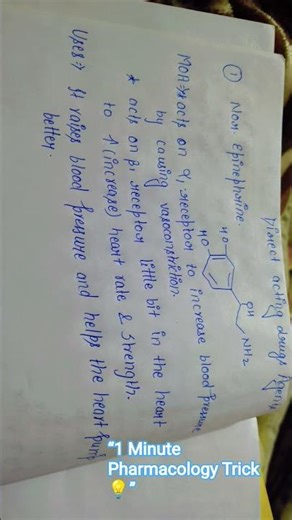 Direct acting drugs Agents
① Nor. epinephrine.
HO
HO
OH
NH2
MOA⇒ acts on α1-receptors to increase blood pressure
by causing vasoconstriction.
* acts on β1 receptors little bit in the heart
to ↑(increase) heart rate & strength.
Uses⇒ It raises blood pressure and helps the heart pump
better.
"1 Minute
Pharmacology Trick
💡"